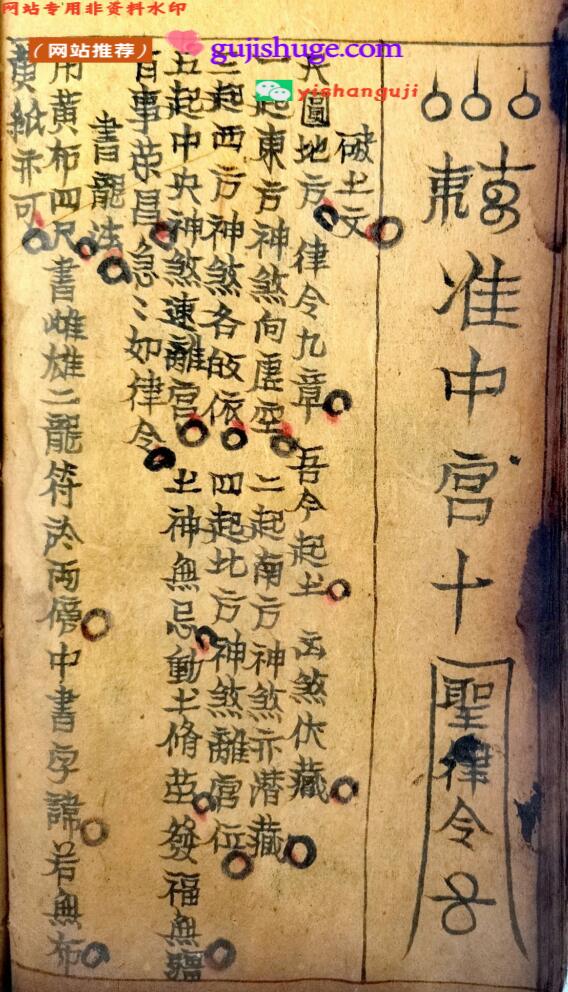 网站专用非资料水印
(网站推荐)
gujishuge.com
yishanguji
准中宫十
聖律令
破土文
天圓地方 律令九章 吾今起土 凶煞伏藏
一起東方神煞向虛空 二起南方神煞亦潛藏
三起西方神煞各皈依 四起北方神煞離宫位
五起中央神煞速離宫 土神無忌動土修茔發福無疆
百事荣昌急〻如律令
書龍法
用黄布四尺書雌雄二龍符於兩傍中書字諱若無布
黄紙亦可